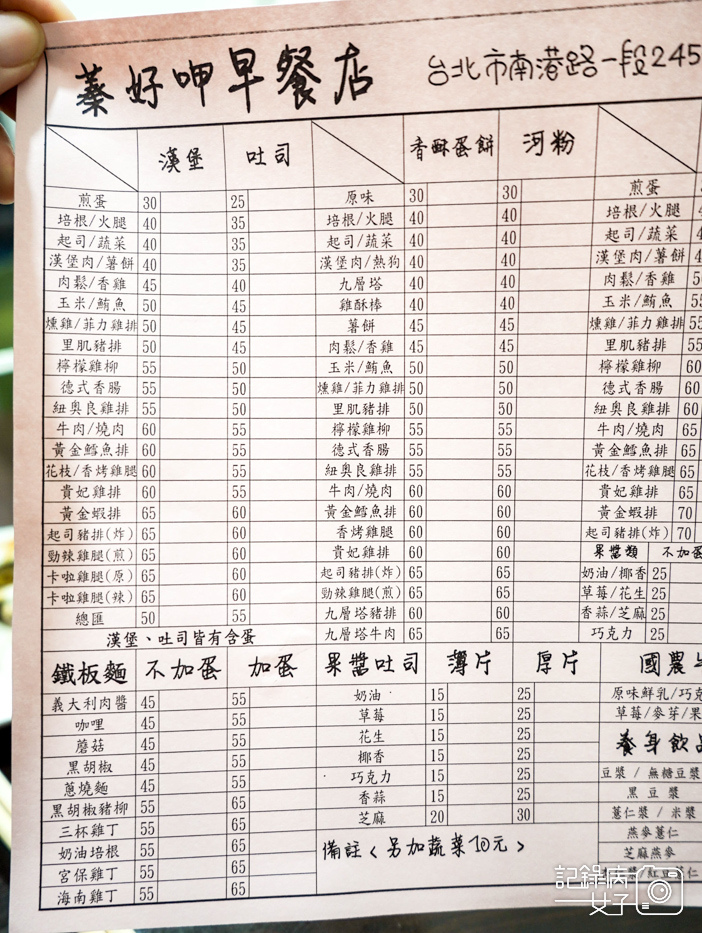 蓁好呷早餐店 台北市南港路一段245
漢堡 吐司
煎蛋 30 25
培根/火腿 40 35
起司/蔬菜 40 35
漢堡肉/薯餅 40 35
肉鬆/香雞 45 40
玉米/鮪魚 50 45
燻雞/菲力雞排 50 45
里肌豬排 50 45
檸檬雞柳 55 50
德式香腸 55 50
紐奧良雞排 55 50
牛肉/燒肉 60 55
黃金鱈魚排 60 55
花枝/香烤雞腿 60 55
貴妃雞排 60 55
黃金蝦排 65 60
起司豬排(炸) 65 60
勁辣雞腿(煎) 65 60
卡啦雞腿(原) 65 60
卡啦雞腿(辣) 65 60
總匯 50 55
漢堡、吐司皆有含蛋
香酥蛋餅 河粉
原味 30 30
培根/火腿 40 40
起司/蔬菜 40 40
漢堡肉/熱狗 40 40
九層塔 40 40
雞酥棒 40 40
薯餅 45 45
肉鬆/香雞 45 45
玉米/鮪魚 50 50
燻雞/菲力雞排 50 50
里肌豬排 50 50
檸檬雞柳 55 55
德式香腸 55 55
紐奧良雞排 55 55
牛肉/燒肉 60 60
黃金鱈魚排 60 60
香烤雞腿 60 60
貴妃雞排 60 60
起司豬排(炸) 65 65
勁辣雞腿(煎) 65 65
九層塔豬排 60 60
九層塔牛肉 65 65
煎蛋
培根/火腿
起司/蔬菜
漢堡肉/薯餅
肉鬆/香雞
玉米/鮪魚 55
燻雞/菲力雞排 55
里肌豬排 55
檸檬雞柳 60
德式香腸 60
紐奧良雞排 60
牛肉/燒肉 65
黃金鱈魚排 65
花枝/香烤雞腿 65
貴妃雞排 65
黃金蝦排 70
起司豬排(炸) 70
果醬類 不加蛋
奶油/椰香 25
草莓/花生 25
香蒜/芝麻 25
巧克力 25
鐵板麵 不加蛋 加蛋
義大利肉醬 45 55
咖哩 45 55
蘑菇 45 55
黑胡椒 45 55
蔥燒麵 45 55
黑胡椒豬柳 55 65
三杯雞丁 55 65
奶油培根 55 65
宮保雞丁 55 65
海南雞丁 55 65
果醬吐司 薄片 厚片
奶油 15 25
草莓 15 25
花生 15 25
椰香 15 25
巧克力 15 25
香蒜 15 25
芝麻 20 30
備註<另加蔬菜10元>
國農牛
原味鮮乳/巧克
草莓/麥芽/果
養身飲品
豆漿 / 無糖豆漿
黑豆漿
薏仁漿 / 米漿
燕麥薏仁
芝麻燕麥
紅豆薏仁
記錄病女子